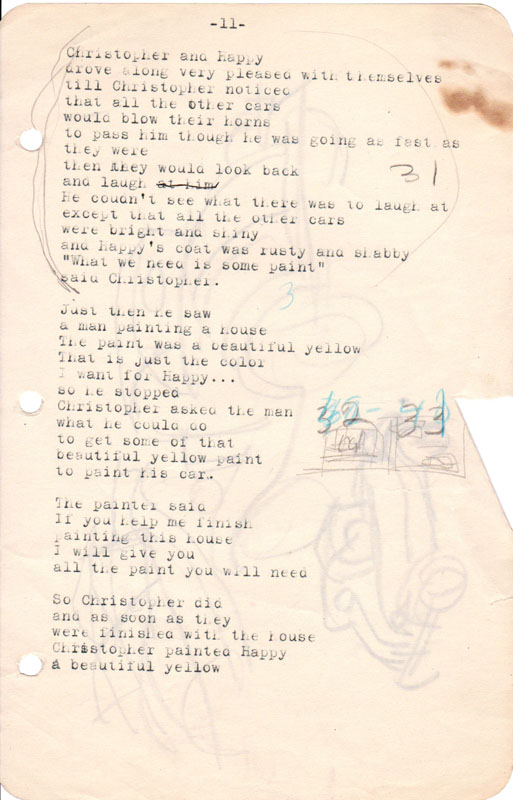 -11-
Christopher and Happy
drove along very pleased with themselves
till Christopher noticed
that all the other cars
would blow their horns
to pass him though he was going as fast as
they were
then they would look back
and laugh at him
31
He coudn't see what there was to laugh at
except that all the other cars
were bright and shiny
and Happy's coat was rusty and shabby
"What we need is some paint"
said Christopher.
3
Just then he saw
a man painting a house
The paint was a beautiful yellow
That is just the color
I want for Happy...
so he stopped
Christopher asked the man
what he could do
to get some of that
beautiful yellow paint
to paint his car.
32 - 33
The painter said
If you help me finish
painting this house
I will give you
all the paint you will need
So Christopher did
and as soon as they
were finished with the house
Christopher painted Happy
a beautiful yellow